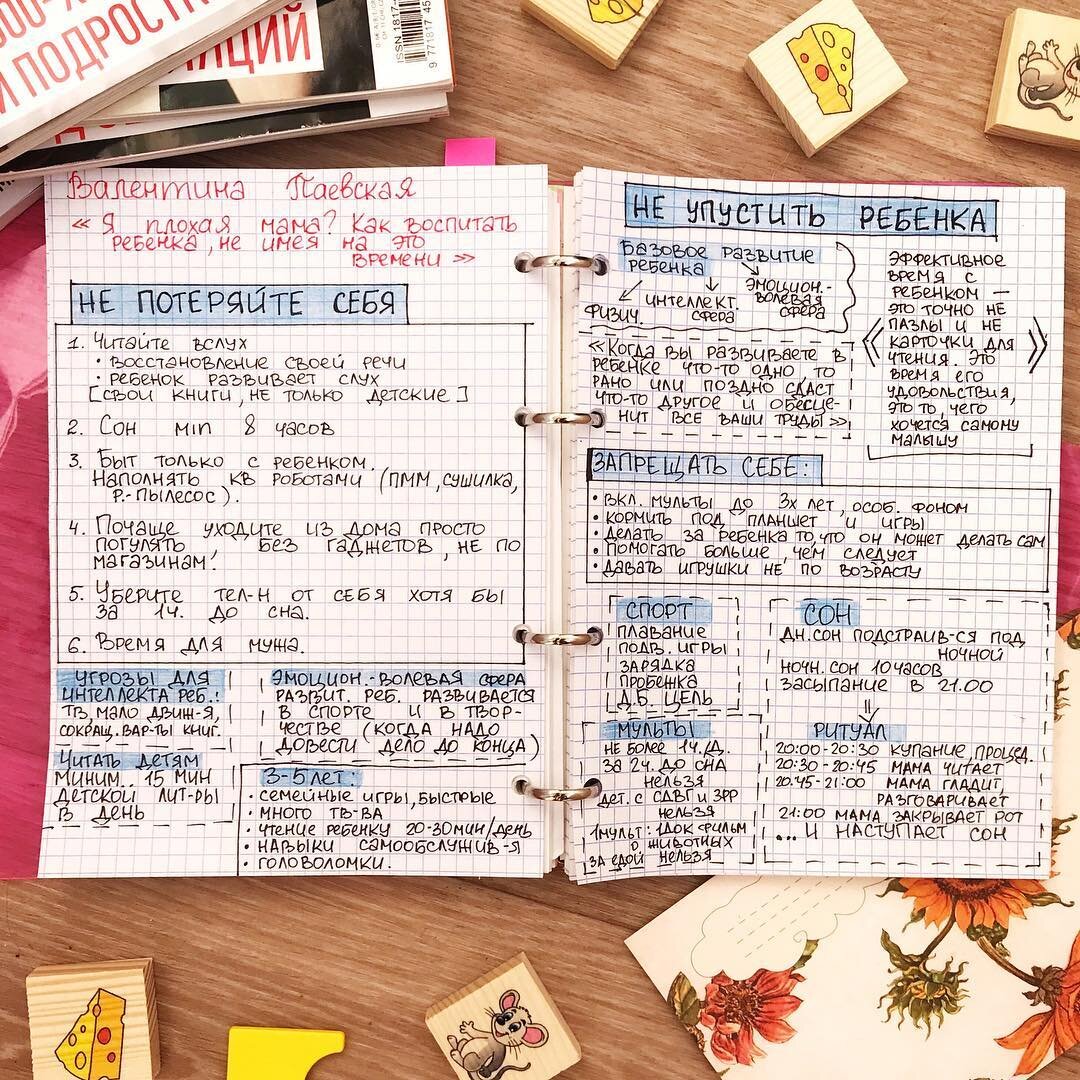 И ПОДРОСТ
ЛЯЦИЙ
ISSN 1817-4
9 771817 45
Валентина Паевская
« Я плохая мама? Как воспитать
ребенка, не имея на это
времени »
НЕ ПОТЕРЯЙТЕ СЕБЯ
1. Читайте вслух
• восстановление своей речи
• ребенок развивает слух
[свои книги, не только детские]
2. Сон min 8 часов
3. Быт только с ребенком.
Наполнять кв роботами (ПММ, сушилка,
р.-пылесос).
4. Почаще уходите из дома просто
погулять, без гаджетов, не по
магазинам.
5. Уберите тел-н от себя хотя бы
за 1ч. до сна.
6. Время для мужа.
Угрозы для
интеллекта реб.:
ТВ, мало движ-я,
сокращ. вар-ты книг.
Читать детям
миним. 15 мин
детской лит-ры
в день
Эмоцион.-волевая сфера
развит. реб. развивается
в спорте и в твор-
честве (когда надо
довести дело до конца)
3-5 лет:
• семейные игры, быстрые
• много тв-ва
• чтение ребенку 20-30 мин/день
• навыки самообслужив-я
• головоломки.
НЕ УПУСТИТЬ РЕБЕНКА
Базовое развитие
ребенка
физич.
интеллект.
сфера
эмоцион.-
волевая
сфера
«Когда вы развиваете в
ребенке что-то одно, то
рано или поздно сдаст
что-то другое и обесце-
нит все ваши труды»
Эффективное
время с
ребенком —
это точно не
пазлы и не
карточки для
чтения. Это
время его
удовольствия,
это то, чего
хочется самому
малышу
ЗАПРЕЩАТЬ СЕБЕ:
• вкл. мульты до 3х лет, особ. фоном
• кормить под планшет и игры
• делать за ребенка то, что он может делать сам
• помогать больше, чем следует
• давать игрушки не по возрасту
СПОРТ
плавание
подв. игры
зарядка
пробежка
д.б. цель
МУЛЬТЫ
не более 1ч./д.
за 2ч. до сна
нельзя
дет. с СДВГ и ЗРР
нельзя
1 мульт: 1 док. фильм
о животных
за едой нельзя
СОН
дн. сон подстраив-ся под
ночной
ночн. сон 10 часов
засыпание в 21.00
РИТУАЛ
20:00-20:30 купание, процед.
20:30-20:45 мама читает
20.45-21:00 мама гладит,
разговаривает
21:00 мама закрывает рот
... и наступает сон